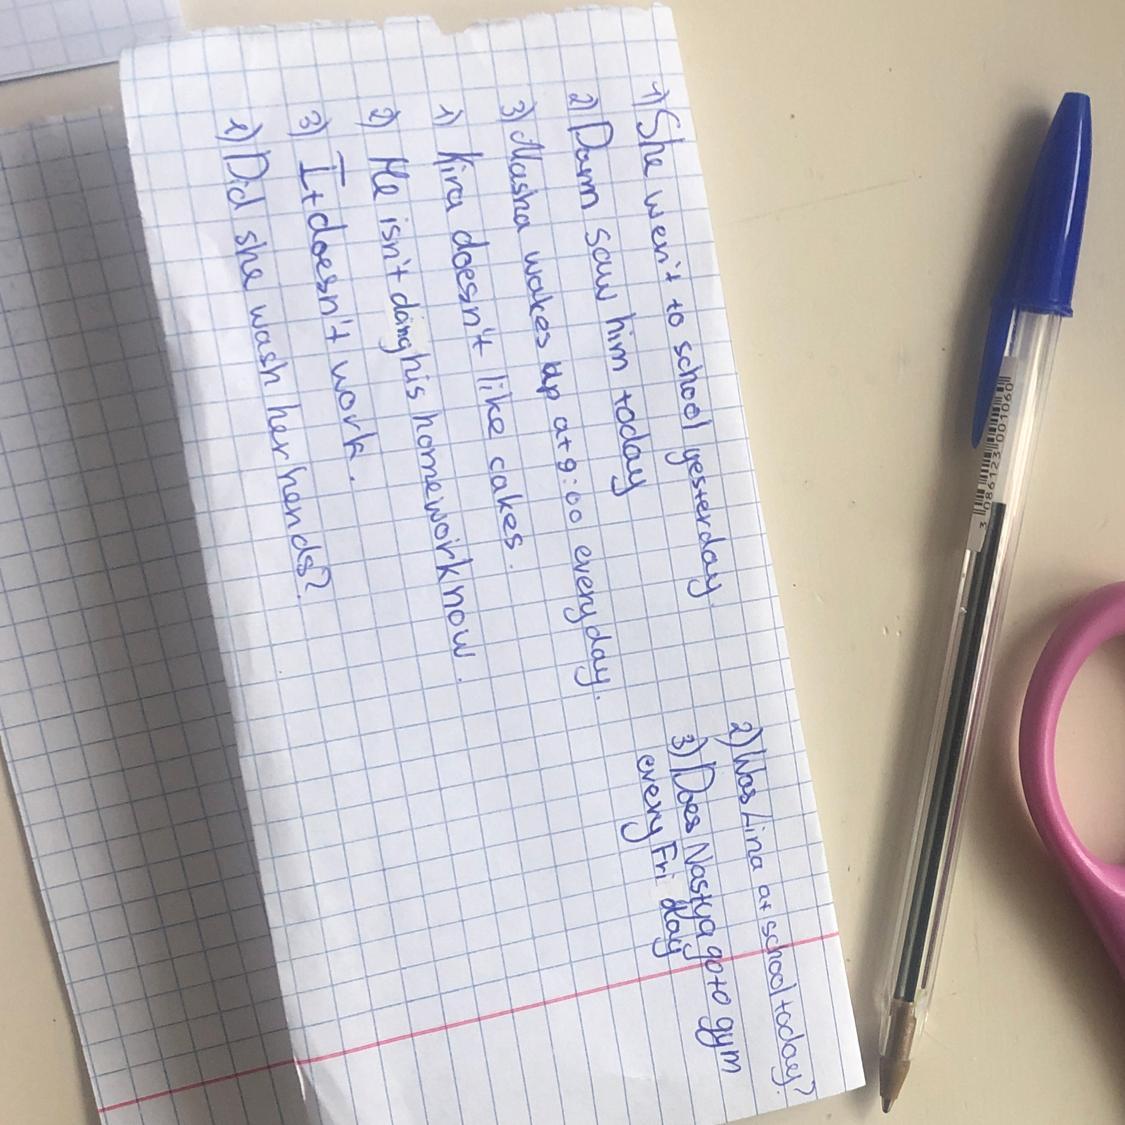 1) She wen't to school yesterday.
2) Damn saw him today
3) Masha wakes up at 9:00 every day.
1) Kira doesn't like cakes.
2) He isn't doing his homework now.
3) It doesn't work.
1) Did she wash her hends?
2) Was Lina at school today?
3) Does Nastya go to gym
every Fri day
3 086123 001060